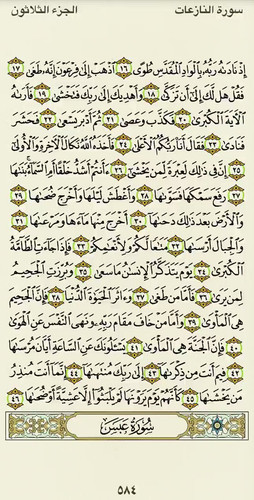 سورة النازعات
الجزء الثلاثون
إِذْ نَادَىٰهُ رَبُّهُۥ بِٱلْوَادِ ٱلْمُقَدَّسِ طُوًى ١٦ ٱذْهَبْ إِلَىٰ فِرْعَوْنَ إِنَّهُۥ طَغَىٰ ١٧
فَقُلْ هَل لَّكَ إِلَىٰٓ أَن تَزَكَّىٰ ١٨ وَأَهْدِيَكَ إِلَىٰ رَبِّكَ فَتَخْشَىٰ ١٩ فَأَرَىٰهُ
ٱلْـَٔايَةَ ٱلْكُبْرَىٰ ٢٠ فَكَذَّبَ وَعَصَىٰ ٢١ ثُمَّ أَدْبَرَ يَسْعَىٰ ٢٢ فَحَشَرَ
فَنَادَىٰ ٢٣ فَقَالَ أَنَا۠ رَبُّكُمُ ٱلْأَعْلَىٰ ٢٤ فَأَخَذَهُ ٱللَّهُ نَكَالَ ٱلْـَٔاخِرَةِ وَٱلْأُولَىٰٓ
٢٥ إِنَّ فِى ذَٰلِكَ لَعِبْرَةً لِّمَن يَخْشَىٰٓ ٢٦ ءَأَنتُمْ أَشَدُّ خَلْقًا أَمِ ٱلسَّمَآءُ ۚ بَنَىٰهَا
٢٧ رَفَعَ سَمْكَهَا فَسَوَّىٰهَا ٢٨ وَأَغْطَشَ لَيْلَهَا وَأَخْرَجَ ضُحَىٰهَا ٢٩
وَٱلْأَرْضَ بَعْدَ ذَٰلِكَ دَحَىٰهَآ ٣٠ أَخْرَجَ مِنْهَا مَآءَهَا وَمَرْعَىٰهَا ٣١
وَٱلْجِبَالَ أَرْسَىٰهَا ٣٢ مَتَٰعًا لَّكُمْ وَلِأَنْعَٰمِكُمْ ٣٣ فَإِذَا جَآءَتِ ٱلطَّآمَّةُ
ٱلْكُبْرَىٰ ٣٤ يَوْمَ يَتَذَكَّرُ ٱلْإِنسَٰنُ مَا سَعَىٰ ٣٥ وَبُرِّزَتِ ٱلْجَحِيمُ
لِمَن يَرَىٰ ٣٦ فَأَمَّا مَن طَغَىٰ ٣٧ وَءَاثَرَ ٱلْحَيَوٰةَ ٱلدُّنْيَا ٣٨ فَإِنَّ ٱلْجَحِيمَ
هِىَ ٱلْمَأْوَىٰ ٣٩ وَأَمَّا مَنْ خَافَ مَقَامَ رَبِّهِۦ وَنَهَى ٱلنَّفْسَ عَنِ ٱلْهَوَىٰ
٤٠ فَإِنَّ ٱلْجَنَّةَ هِىَ ٱلْمَأْوَىٰ ٤١ يَسْـَٔلُونَكَ عَنِ ٱلسَّاعَةِ أَيَّانَ مُرْسَىٰهَا
٤٢ فِيمَ أَنتَ مِن ذِكْرَىٰهَآ ٤٣ إِلَىٰ رَبِّكَ مُنتَهَىٰهَآ ٤٤ إِنَّمَآ أَنتَ مُنذِرُ
مَن يَخْشَىٰهَا ٤٥ كَأَنَّهُمْ يَوْمَ يَرَوْنَهَا لَمْ يَلْبَثُوٓا۟ إِلَّا عَشِيَّةً أَوْ ضُحَىٰهَا ٤٦
سُورَةُ عَبَسَ
٥٨٤